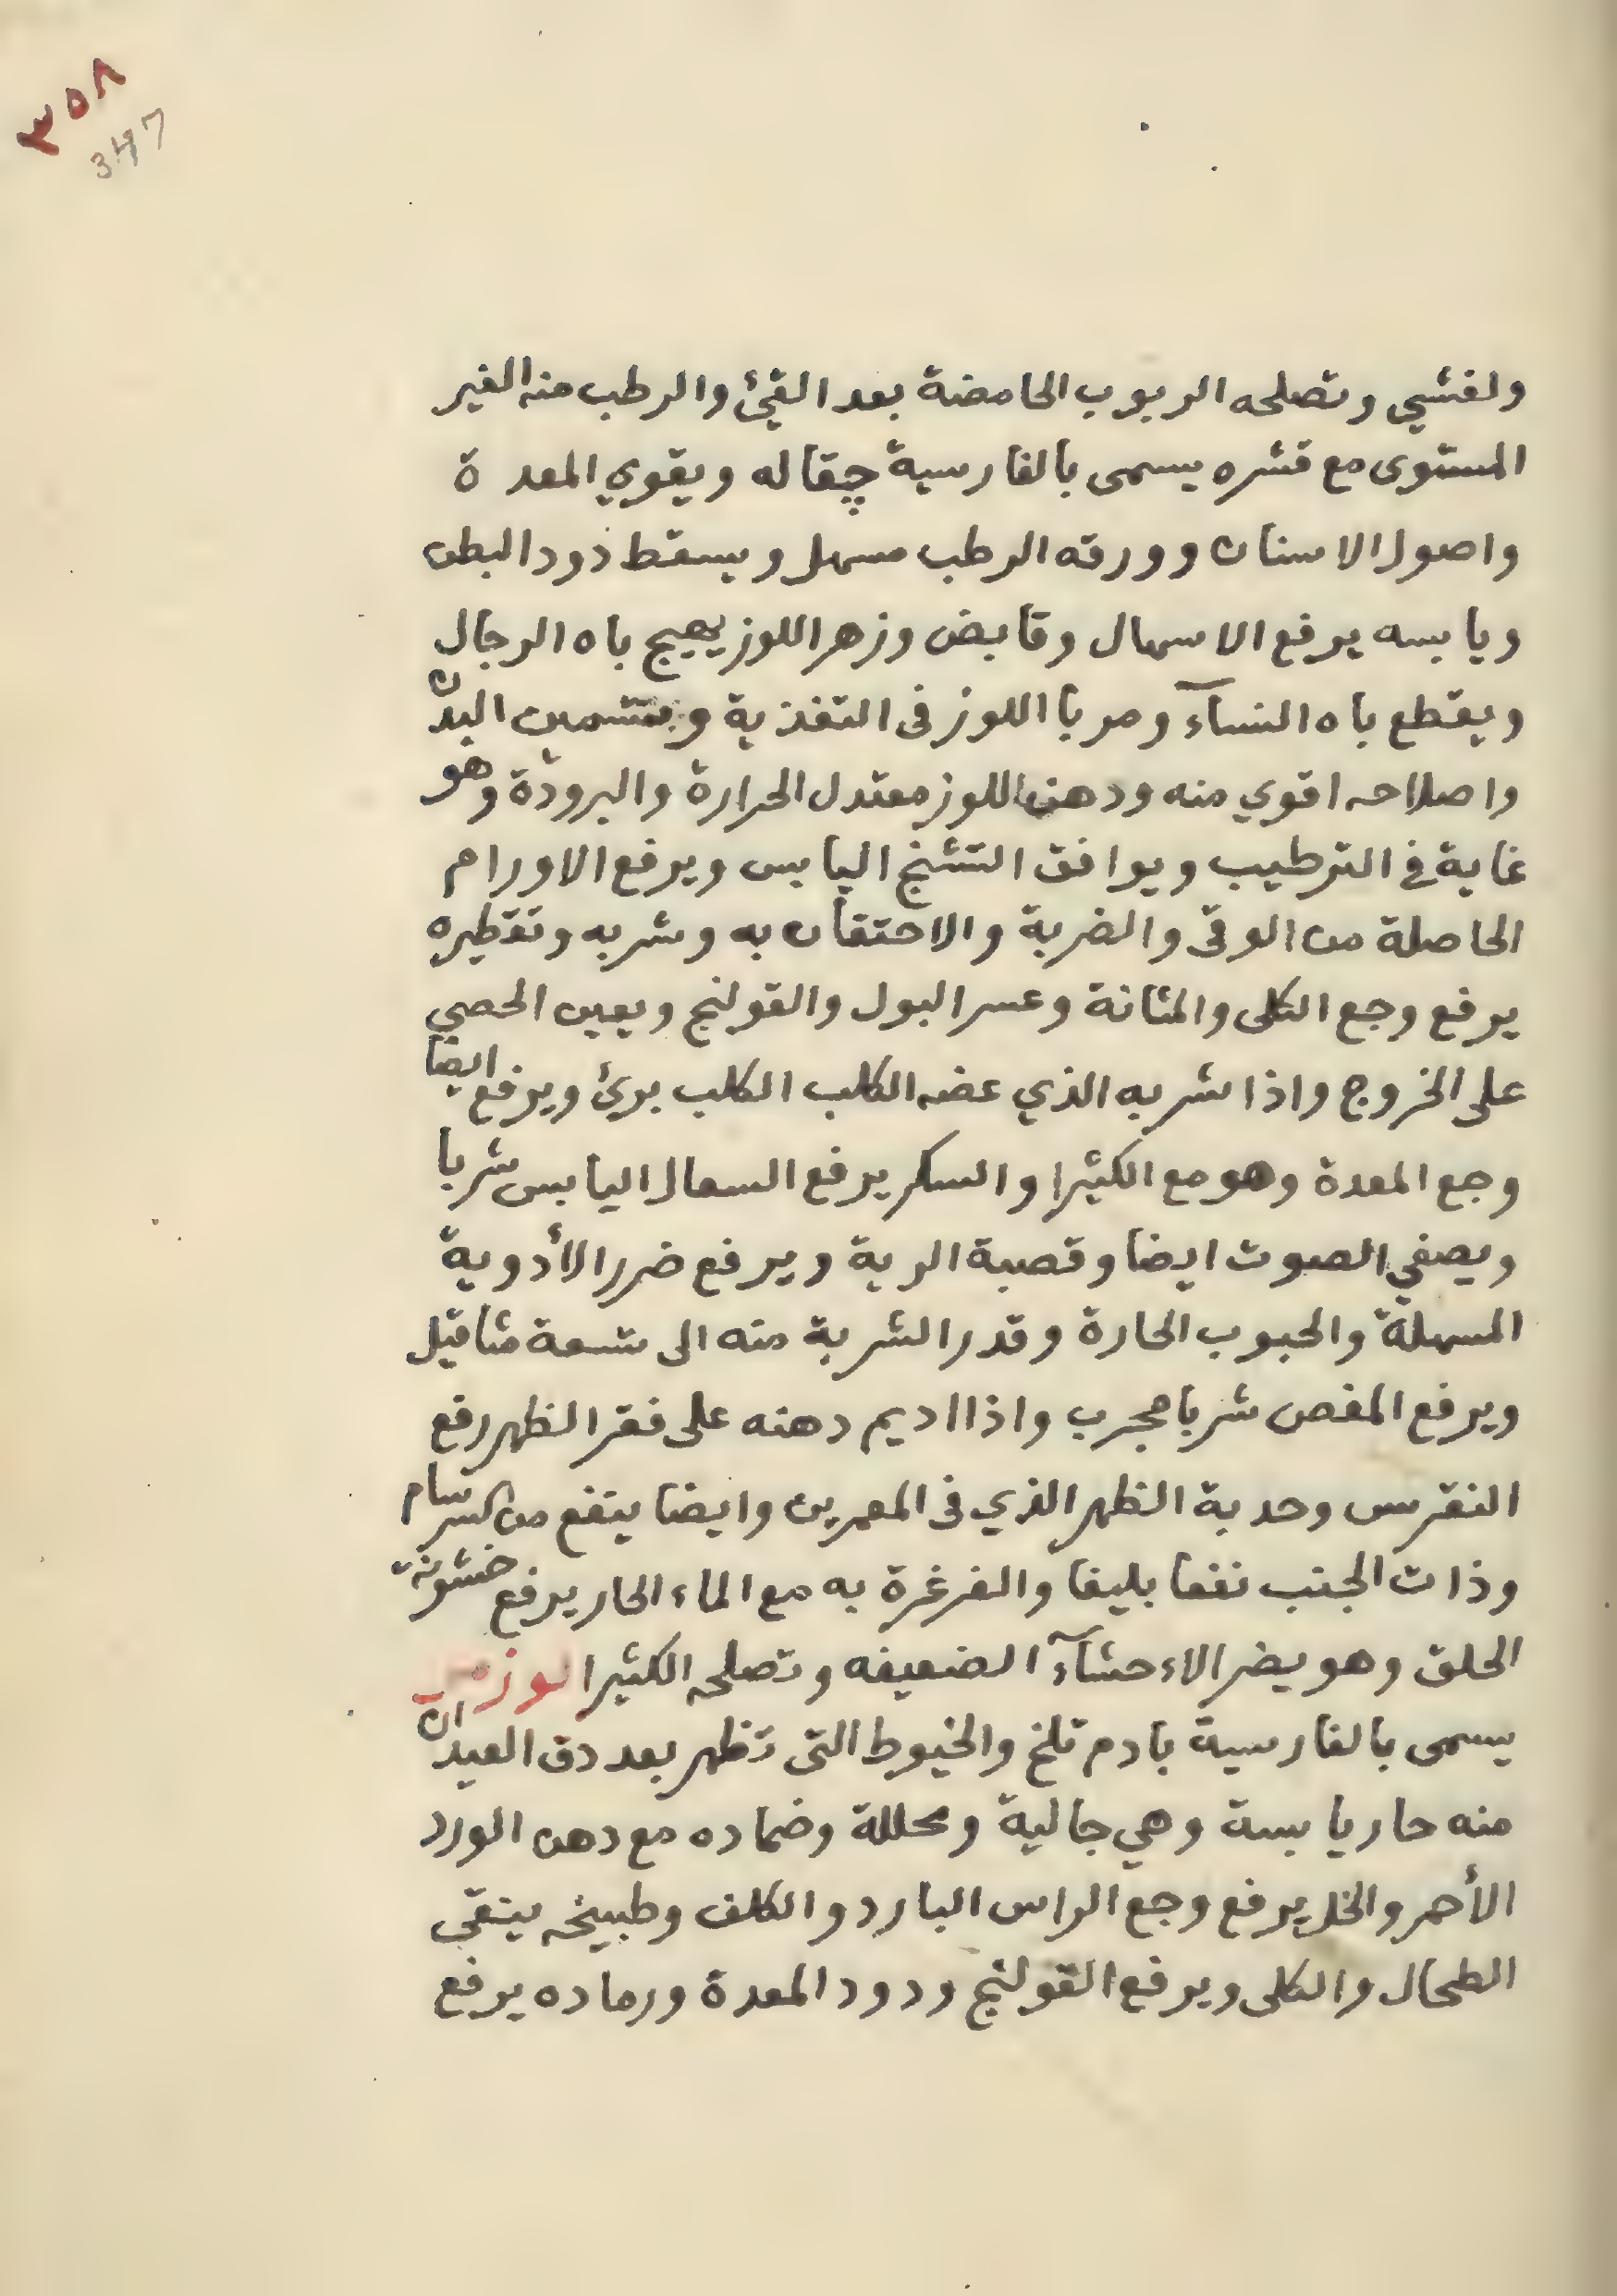 ٣٥٨
347
ولغشي وتصلحه الربوب الحامضة بعد القئ والرطب منه الغير
المستوى مع قشره يسمى بالفارسية چقاله ويقوي المعد ة
واصول الاسنان وورقه الرطب مسهل ويسقط دود البطن
ويابسه يرفع الاسهال وقابض وزهر اللوز يهيج باه الرجال
ويقطع باه النسآء ومربا اللوز فى التغذية وبتسمين البدن
واصلاحه اقوي منه ودهن اللوز معتدل الحرارة والبرودة وهو
غاية في الترطيب ويوافق التشنج اليابس ويرفع الاورام
الحاصلة من الوقى والضربة والاحتقان به وشربه وتقطيره
يرفع وجع الكلى والمثانة وعسر البول والقولنج ويعين الحصي
على الخروج واذا شربه الذي عضه الكلب الكلب برئ ويرفع ايضا
وجع المعدة وهو مع الكثيرا والسكر يرفع السعال اليابس شربا
ويصفي الصوت ايضا وقصبة الرية ويرفع ضرر الأدوية
المسهلة والحبوب الحارة وقدر الشربة منه الى تسعة مثاقيل
ويرفع المغص شربا مجرب واذا اديم دهنه على فقر الظهر رفع
النقرس وحدبة الظهر الذي فى المعمرين وايضا ينفع من السرسام
وذات الجنب نفعا بليغا والغرغرة به مع الماء الحار يرفع خشونة
الحلق وهو يضر الاءحشآء الضعيفه وتصلحه الكثيرا لوز
يسمى بالفارسية بادم تلخ والخيوط التى تظهر بعد دق العيدان
منه حار يابسة وهي جالية ومحللة وضماده مع دهن الورد
الأحمر والخل يرفع وجع الراس البارد والكلف وطبيخه ينقي
الطحال والكلى ويرفع القولنج ودود المعدة ورماده يرفع